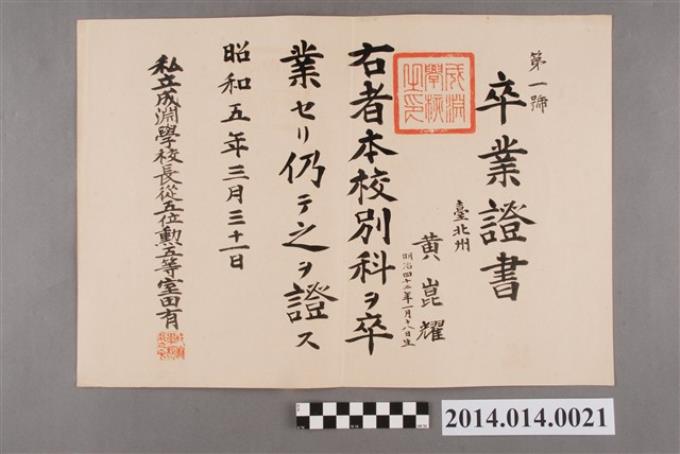 第一號
卒業證書
臺北州
黃崑耀
明治四十二年一月十八日生
右者本校別科ヲ卒
業セリ仍テ之ヲ證ス
昭和五年三月三十一日
私立成淵學校長從五位勲五等室田有
成淵
學校
之印
2014.014.0021